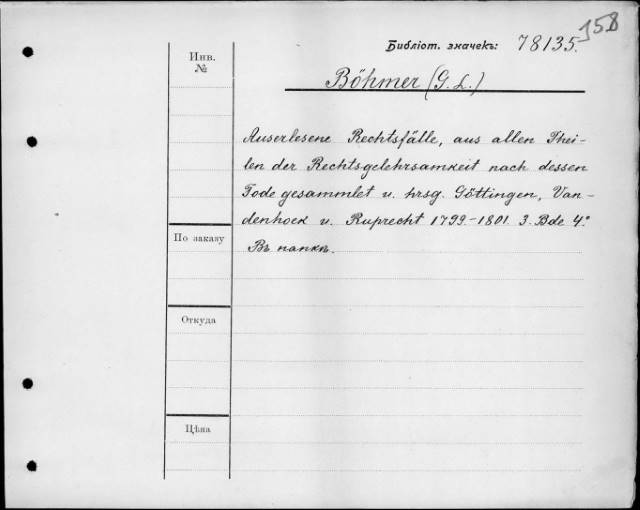 358
Библіот. значекъ: 78135.
Инв.
№
Böhmer (G. L.)
Auserlesene Rechtsfälle, aus allen Thei-
len der Rechtsgelehrsamkeit nach dessen
Tode gesammlet u. hrsg. Göttingen, Van-
denhoek u. Ruprecht 1799-1801. 3. Bde 4°.
Въ папкѣ.
По заказу
Откуда
Цѣна